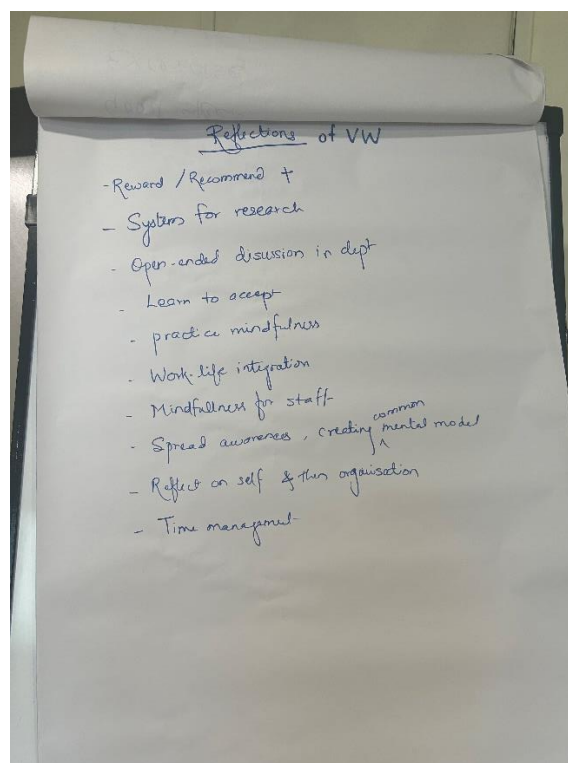 Reflections of VW
- Reward / Recommend +
- System for research
- Open-ended disussion in dept
- Learn to accept
- practice mindfulness
- Work-life integration
- Mindfullness for staff
- Spread awareness, creating common mental model
- Reflect on self & then organisation
- Time management